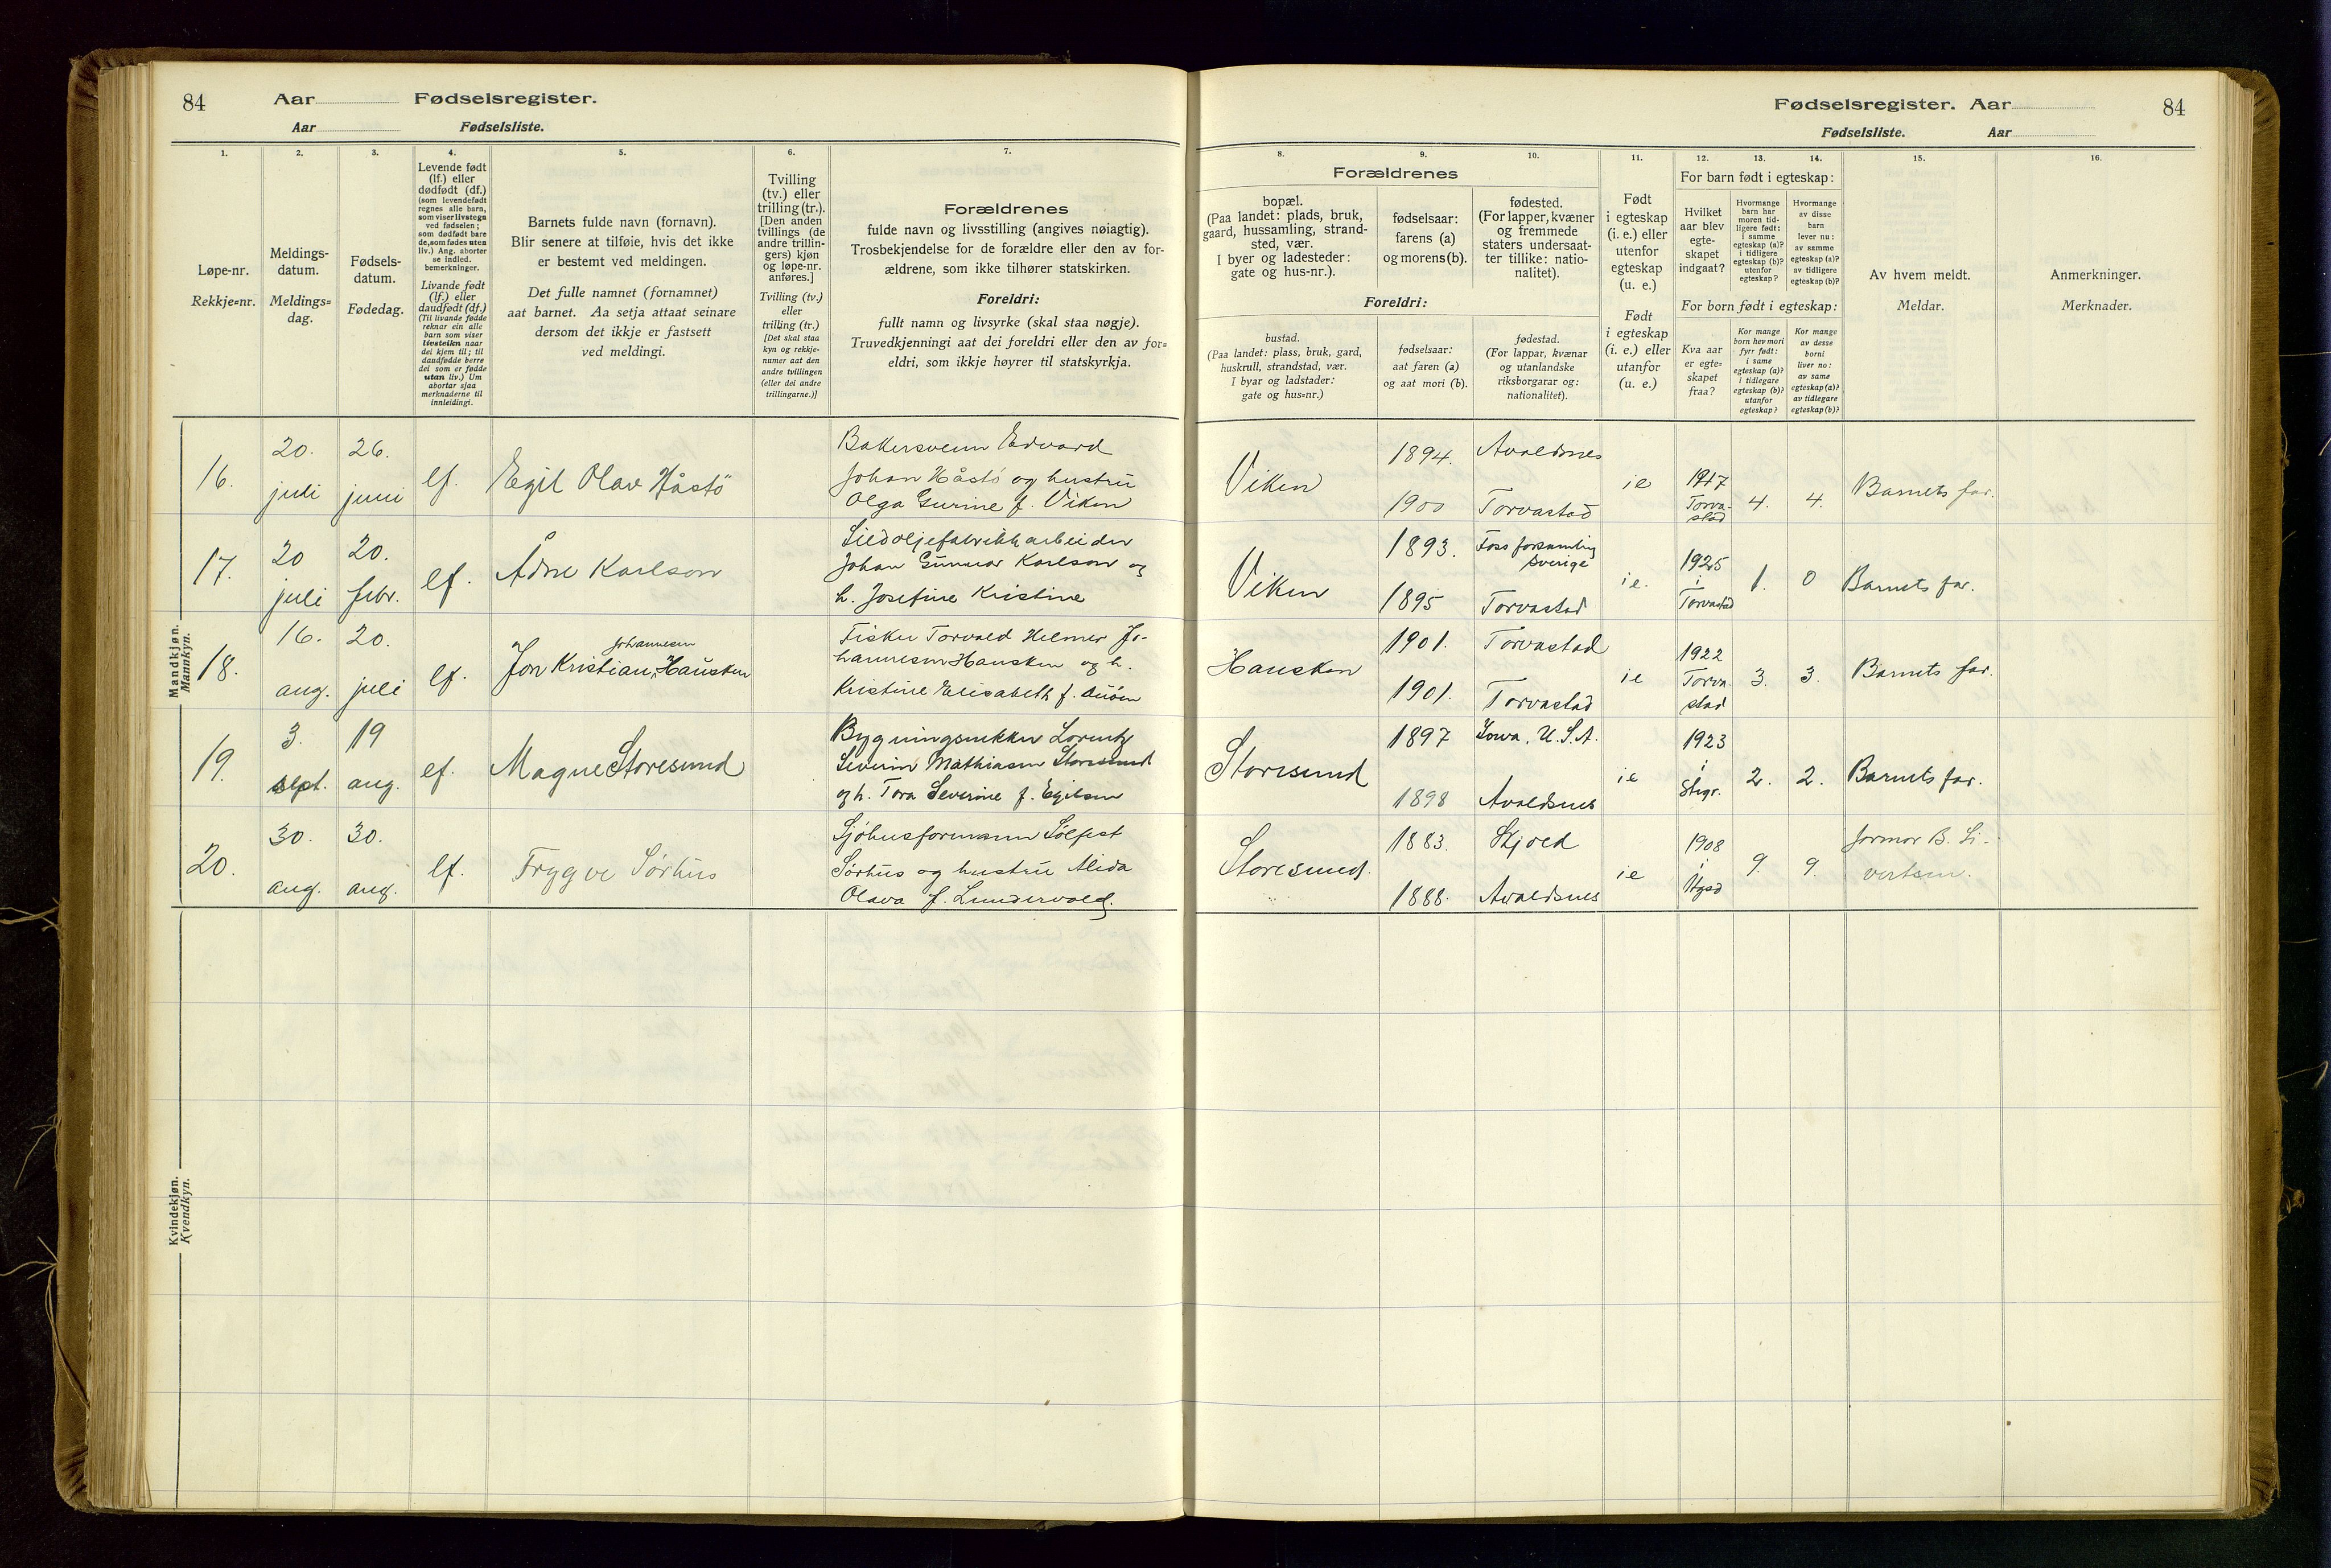 84
Aar
Fødselsregister.
Aar
Fødselsliste.
Fødselsregister. Aar
84
Fødselsliste.
Aar
1.
2.
3.
4.
5.
6.
7.
8.
9.
10.
11.
12.
13.
14.
15.
16.
Løpe-nr.
Rekkje=nr.
Meldings-
datum.
Meldings=
dag.
Fødsels-
datum.
Fødedag.
Levende født
(lf.) eller
dødfødt (df.)
(som levendefødt
regnes alle barn,
som viser livstegn
ved fødselen;
som dødfødt bare
de, som fødes uten
liv.) Ang. aborter
se indled.
bemerkninger.
Livande født
(lf.) eller
daudfødt (df.)
(Til livande fødde
reknar ein alle
barn som viser
livsteikn naar
dei kjem til; til
daudfødde berre
dei som er fødde
utan liv.) Um
abortar sjaa
merknaderne til
innleidingi.
Barnets fulde navn (fornavn).
Blir senere at tilføie, hvis det ikke
er bestemt ved meldingen.
Det fulle namnet (fornamnet)
aat barnet. Aa setja attaat seinare
dersom det ikkje er fastsett
ved meldingi.
Tvilling
(tv.) eller
trilling (tr.).
[Den anden
tvillings (de
andre trillin-
gers) kjøn
og løpe-nr.
anføres.]
Tvilling (tv.)
eller
trilling (tr.)
[Det skal staa
kyn og rekkje-
numer aat den
andre tvillingen
(eller dei andre
trillingarne.)]
Forældrenes
fulde navn og livsstilling (angives nøiagtig).
Trosbekjendelse for de forældre eller den av for-
ældrene, som ikke tilhører statskirken.
Foreldri:
fullt namn og livsyrke (skal staa nøgje).
Truvedkjenningi aat dei foreldri eller den av for=
eldri, som ikkje høyrer til statskyrkja.
Forældrenes
bopæl.
(Paa landet: plads, bruk,
gaard, hussamling, strand-
sted, vær.
I byer og ladesteder:
gate og hus-nr.).
fødselsaar:
farens (a)
og morens (b).
fødested.
(For lapper, kvæner
og fremmede
staters undersaat-
ter tillike: natio-
nalitet).
Foreldri:
bustad.
(Paa landet: plass, bruk, gard,
huskrull, strandstad, vær.
I byar og ladstader:
gate og hus=nr.)
fødselsaar:
aat faren (a)
og aat mori (b).
fødestad.
(For lappar, kvænar
og utanlandske
riksborgarar og:
nationalitet).
Født
i egteskap
(i. e.) eller
utenfor
egteskap
(u. e.)
Født
i egteskap
(i. e.) eller
utanfor
(u. e.)
For barn født i egteskap:
Hvilket
aar blev
egte-
skapet
indgaat?
Hvormange
barn har
moren tid-
ligere født:
i samme
egteskap (a)?
i tidligere
egteskap (b)?
utenfor
egteskap?
Hvormange
av disse
barn
lever nu:
av samme
egteskap (a)?
av tidligere
egteskap (b)?
For born født i egteskap:
Kva aar
er egte-
skapet
fraa?
Kor mange
born hev mori
fyrr født:
i same
egteskap (a)?
i tidlegare
egteskap (b)?
utanfor
egteskap?
Kor mange
av desse
borni
liver no:
av same
egteskap (a)?
av tidlegare
egteskap (b)?
Av hvem meldt.
Meldar.
Anmerkninger.
Merknader.
Mandkjøn.
Mannkyn.
16.
20.
juli
26.
juni
lf.
Egil Olav Håstö
Bakersvenn Edvard
Johan Håstö og hustru
Olga Gurine f. Viken
Viken
1894.
1900
Avaldsnes
Torvastad
ie
Torva-
stad
4.
4.
Barnets far.
17.
20
juli
20.
febr.
lf.
Ådne Karlson
Sildoljefabrikkarbeider
Johan Gunnar Karlson og
h. Josefine Kristine
Viken
1893.
1895
Foss forsamling
Sverige
Torvastad
ie.
1925
i
Torvastad
1.
0
Barnets far.
18.
16.
aug.
20.
juli
lf.
Johannesen
Jon Kristian Hausken
Fisker Torvald Helmer Jo-
hannesen Hausken og h.
Kristine Elisabeth f.
Hausken
1901.
1901.
Torvastad
Torvastad
ie
1922
Torva-
stad
3.
3.
Barnets far.
19.
3.
sept.
19
aug.
lf.
Magne Storesund
Bygningsnekker Lorentz
Severin Mathiasen Storesund
og h. Tora Severine f. Egilsen
Storesund
1897
1898
Iowa, U.S.A.
Avaldsnes
ie
1923
i
2.
2.
Barnets far.
20.
30.
aug.
30.
aug.
lf.
Trygve Sörhus
Sjöhusformann Sölfest
Sörhus og hustru Alida
Olava f. Lundervold.
Storesund.
1883.
1888.
Skjold
Avaldsnes
ie
1908
i
9.
9.
Jormor B. Si-
vertsen.
Kvindekjøn.
Kvendkyn.